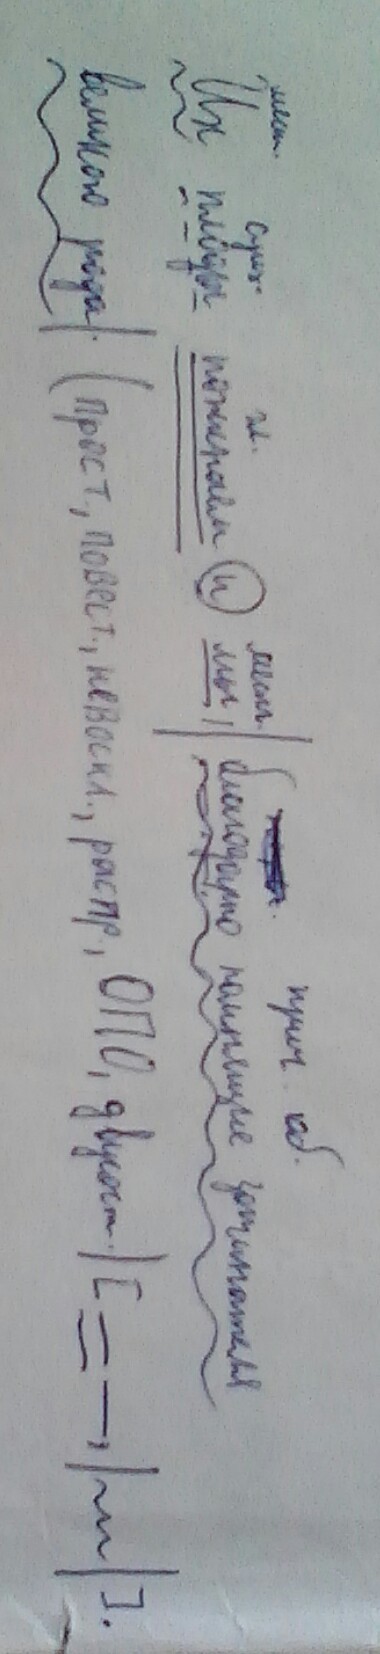 мест. сущ. гл. мест. прич. об.
Их плоды пожинаем и мы, | благодарно помнящие зачинателя
великого рода|. (Прост., повест., невоскл., распр., ОПО, двусост.) [= —, |~~|].